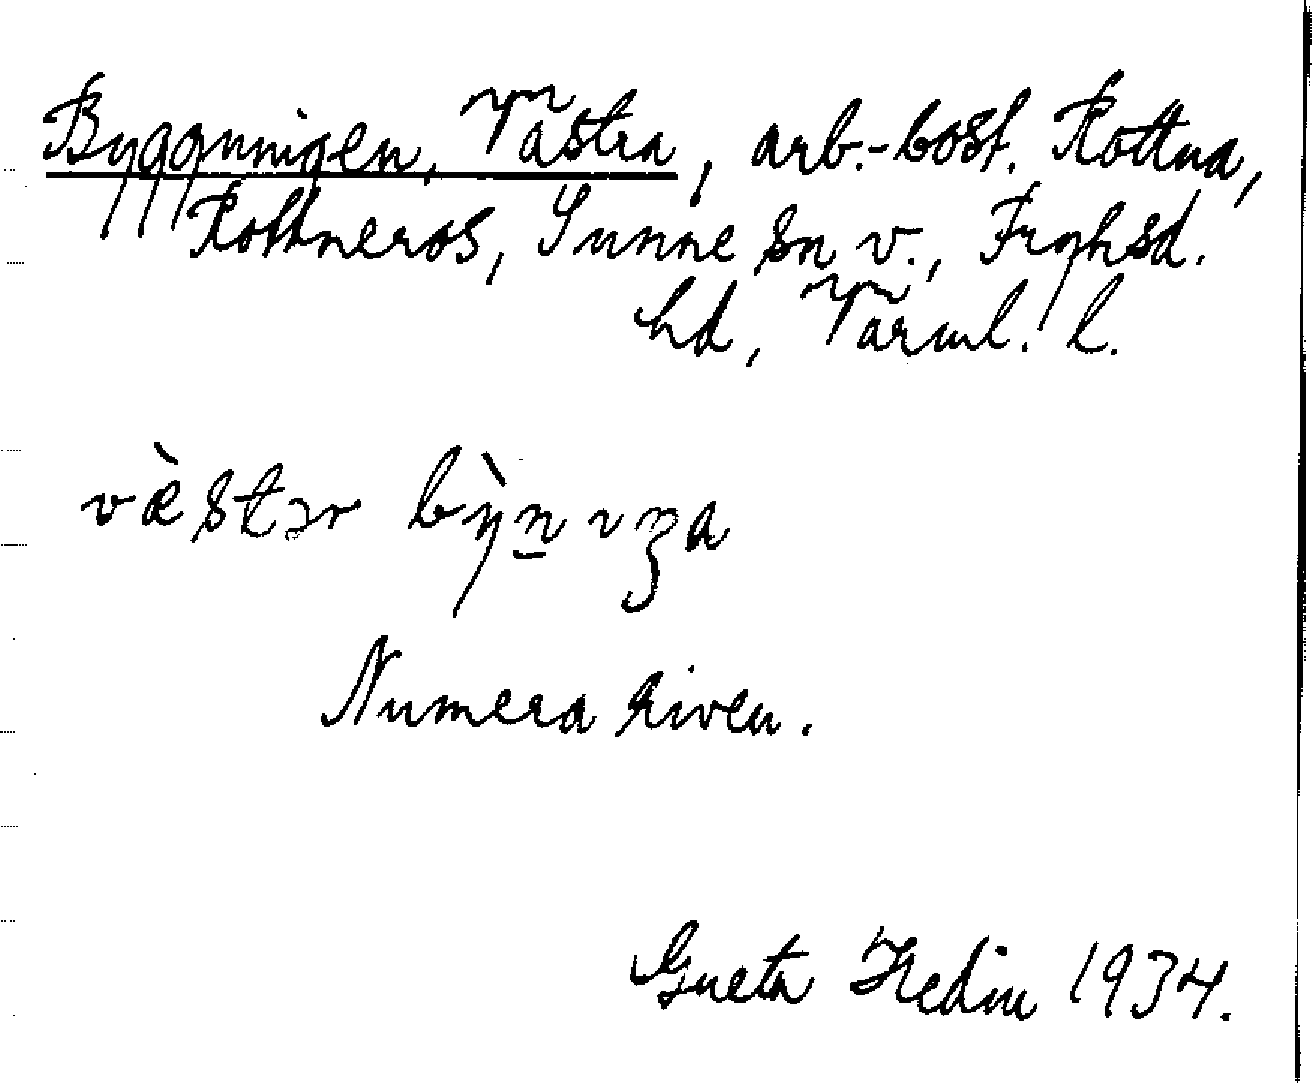 Byggningen, Västra, arb.-bost. Rottna,
Rottneros, Sunne sn v., Fryksd.
hd, Värml. l.
væ̀stər bỳn̲ıŋa
Numera riven.
Greta Hedin 1934.